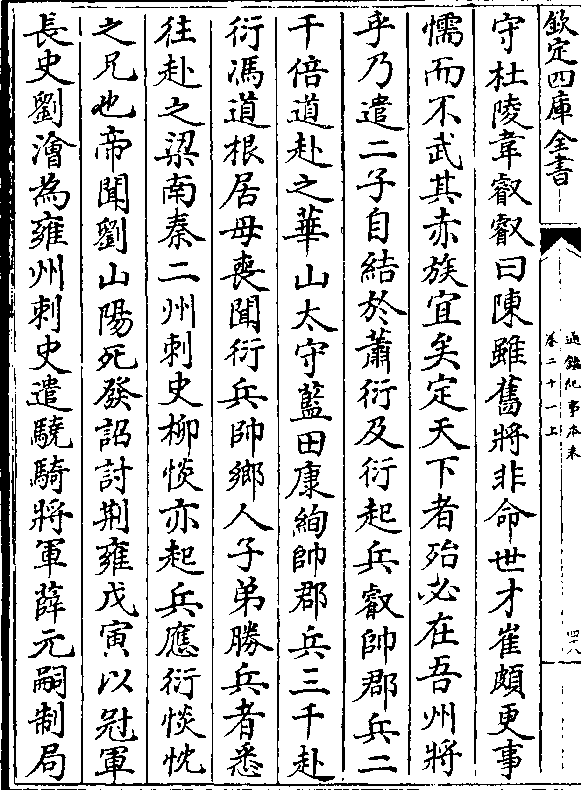 欽定四庫全書
通鑑紀事本末
卷二十一上
四十八
守杜陵韋叡叡曰陳雖舊將非命世才崔頗更事
懦而不武其赤族宜矣定天下者殆必在吾州將
乎乃遣二子自結於蕭衍及衍起兵叡帥郡兵二
千倍道赴之華山太守藍田康絢帥郡兵三千赴
衍馮道根居母喪聞衍兵帥鄉人子弟勝兵者悉
往赴之梁南秦二州刺史柳惔亦起兵應衍惔忱
之兄也帝聞劉山陽死發詔討荆雍戊寅以冠軍
長史劉澮為雍州刺史遣驍騎將軍薛元嗣制局